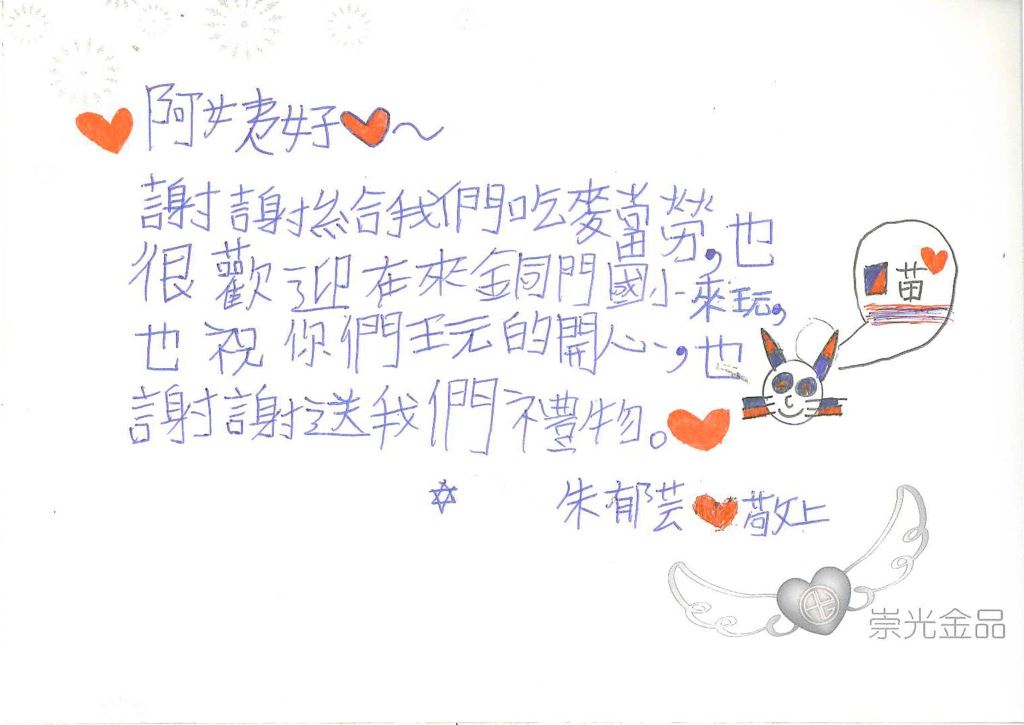 阿姨好～
謝謝給我們吃麥當勞，也
很歡迎在來銅門國小來玩，
也祝你們玩的開心，也
謝謝送我們禮物。
苗
朱郁芸敬上
崇光金品